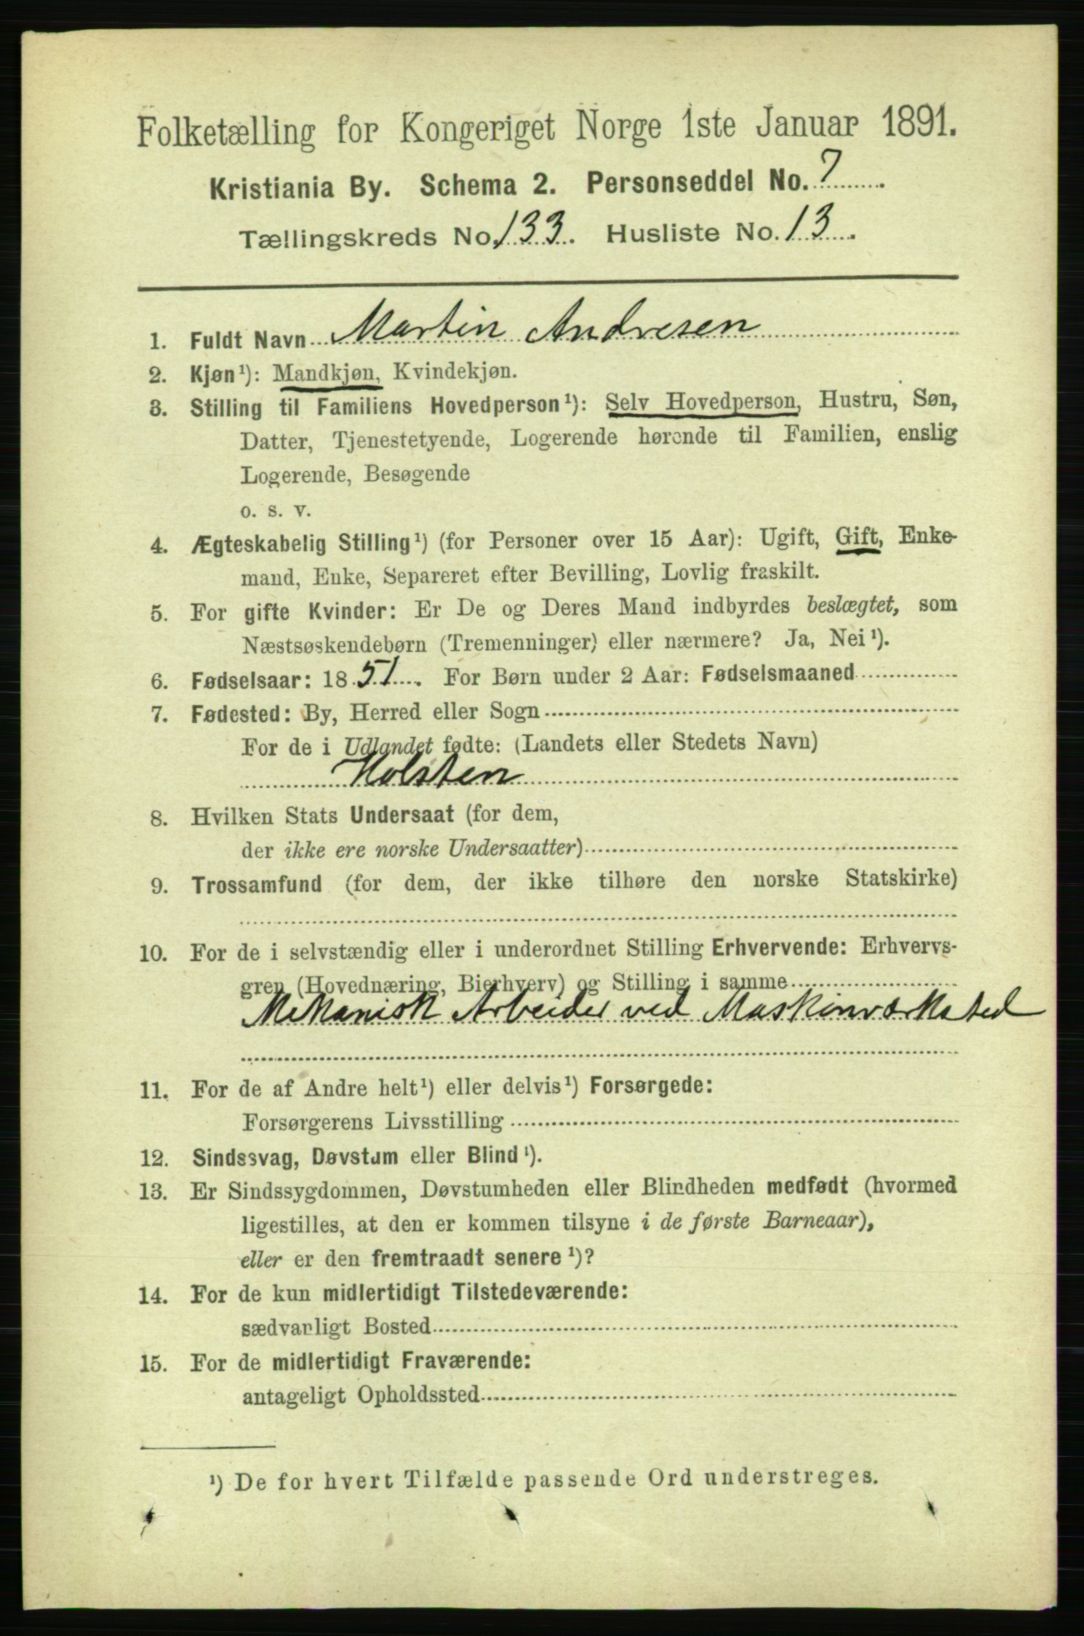 Folketælling for Kongeriget Norge 1ste Januar 1891.
Kristiania By. Schema 2. Personseddel No. 7.
Tællingskreds No. 133. Husliste No. 13.
1. Fuldt Navn Martin Andresen
2. Kjøn¹): Mandkjøn, Kvindekjøn.
3. Stilling til Familiens Hovedperson¹): Selv Hovedperson, Hustru, Søn,
Datter, Tjenestetyende, Logerende hørende til Familien, enslig
Logerende, Besøgende
o. s. v.
4. Ægteskabelig Stilling¹) (for Personer over 15 Aar): Ugift, Gift, Enke-
mand, Enke, Separeret efter Bevilling, Lovlig fraskilt.
5. For gifte Kvinder: Er De og Deres Mand indbyrdes beslægtet, som
Næstsøskendebørn (Tremenninger) eller nærmere? Ja, Nei¹).
6. Fødselsaar: 1851. For Børn under 2 Aar: Fødselsmaaned
7. Fødested: By, Herred eller Sogn
For de i Udlandet fødte: (Landets eller Stedets Navn)
Holsten
8. Hvilken Stats Undersaat (for dem,
der ikke ere norske Undersaatter)
9. Trossamfund (for dem, der ikke tilhøre den norske Statskirke)
10. For de i selvstændig eller i underordnet Stilling Erhvervende: Erhvervs-
gren (Hovednæring, Bierhverv) og Stilling i samme
Mekanisk Arbeider ved Maskinværksted
11. For de af Andre helt¹) eller delvis¹) Forsørgede:
Forsørgerens Livsstilling
12. Sindssvag, Døvstum eller Blind¹).
13. Er Sindssygdommen, Døvstumheden eller Blindheden medfødt (hvormed
ligestilles, at den er kommen tilsyne i de første Barneaar),
eller er den fremtraadt senere¹)?
14. For de kun midlertidigt Tilstedeværende:
sædvanligt Bosted
15. For de midlertidigt Fraværende:
antageligt Opholdssted
¹) De for hvert Tilfælde passende Ord understreges.